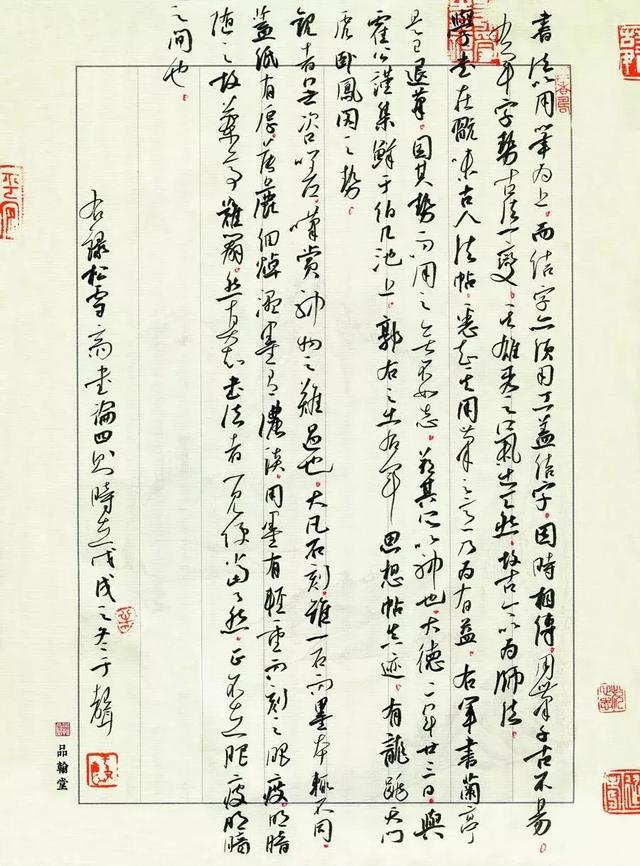 書法以用筆為上。而結字亦須用工。蓋結字因時相傳。用筆千古不易。
右軍字勢古法一變。其雄秀之氣出天然。故古今以為師法。
學書在翫味古人法帖。悉知其用筆之意。乃為有益。右軍書蘭亭
是已退筆。因其勢而用之。無不如志。茲其所以神也。大德二年廿三日。與
霍公謹集鮮于伯几池上。郭右之出右軍思想帖真迹。有龍跳天門
虎臥鳳閣之勢。
觀者無咨嗟。嘆賞神物之難遇也。大凡石刻。雖一石而墨本輒不同。
蓋紙有厚薄麤細燥溼。墨有濃淡。用墨有輕重。而刻之肥瘦。明暗
隨之。故蘭亭難辨。然真知書法者一見便當了然。正不在肥瘦明暗
之間也。
右錄松雪齋書論四則時在戊戌之冬于聲
品翰堂